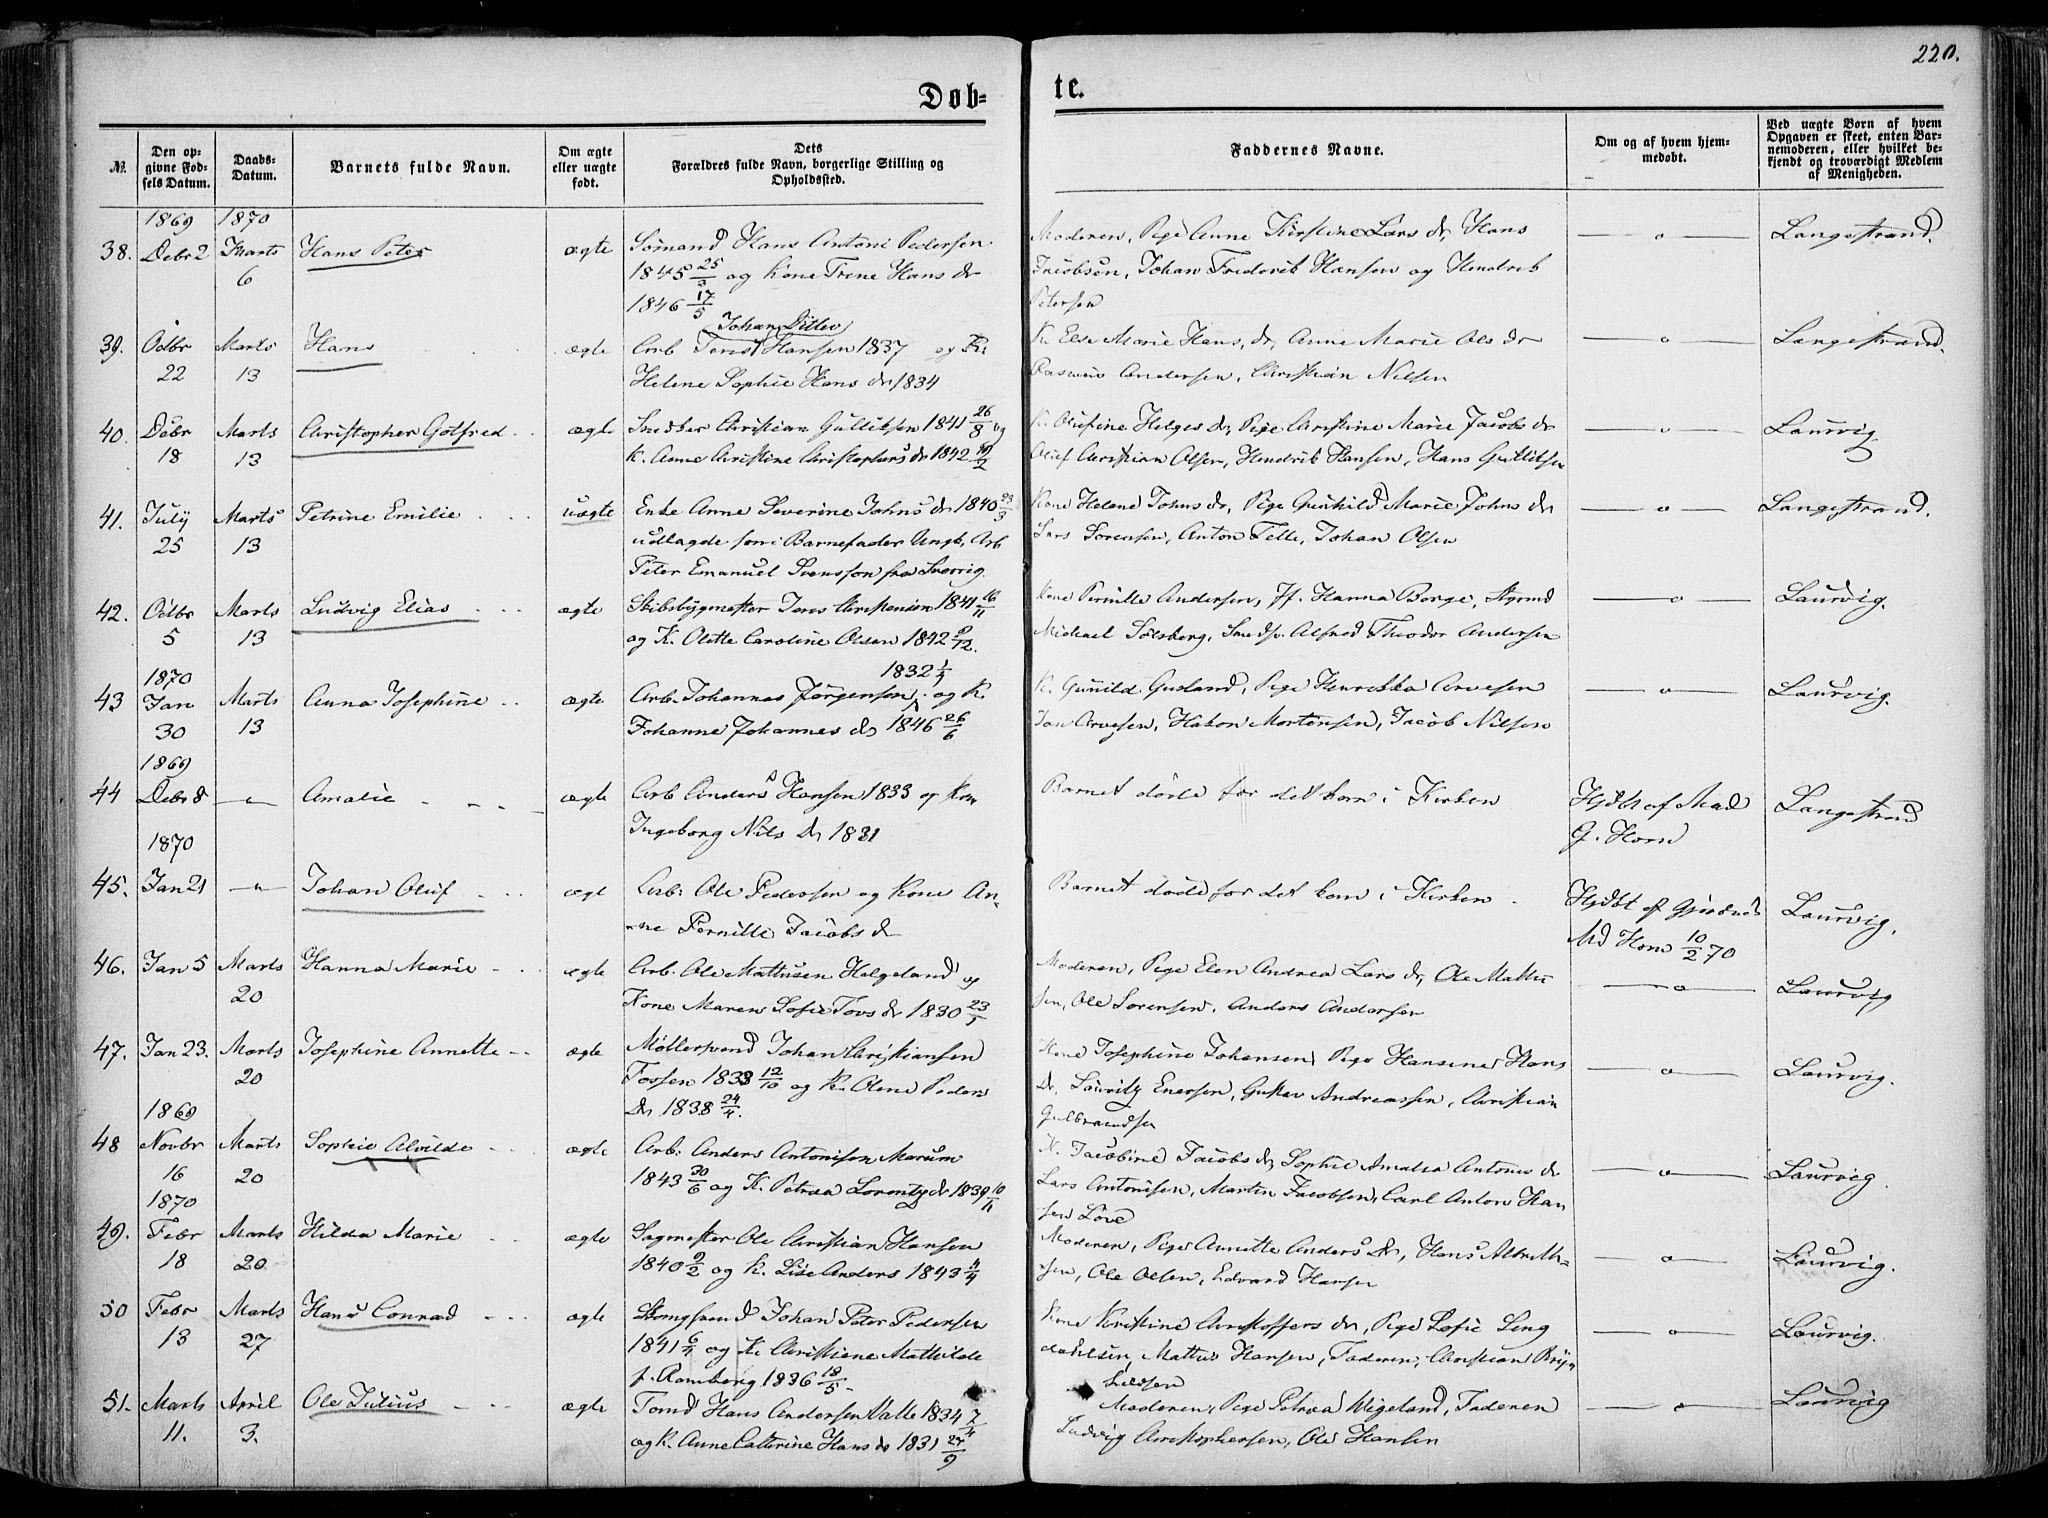 220.
Døb=
te.
№
Den op=
givne Fød=
sels Datum.
Daabs=
Datum.
Barnets fulde Navn.
Om ægte
eller uægte
født.
Dets
Forældres fulde Navn, borgerlige Stilling og
Opholdssted.
Faddernes Navne.
Om og af hvem hjem=
medøbt.
Ved uægte Børn af hvem
Opgaven er skeet, enten Bar=
nemoderen, eller hvilket be=
kjendt og troværdigt Medlem
af Menigheden.
1869 1870
38. Debr 2 Marts Hans Peter ægte Sømand Hans Antoni Pedersen
6 1845 og Kone Trine Hans dr
1846 17/5
Moderen, Pige Anne Kirstine Lars dr, Hans
Jacobsen, Johan Frederik Hansen og Hendrik
Petersen
— o — Langestrand.
Johan Ditlev
39. Octbr Marts Hans ægte Arb Hansen 1837 og K:
22 13 Helene Sophie Hans dr 1834
K. Else Marie Hans dr, Anne Marie Ols dr
Rasmus Andersen, Christian Nilsen
— o — Langestrand.
40. Debr Marts Christopher Gotfred ægte Snedker Christian Gulliksen 1841 26/8 og
18 13 K. Anne Christine Christophers dr 1842
K. Olufine Helges dr, Pige Christine Marie Jacobs dr
Oluf Christian Olsen, Hendrik Hansen, Hans Gulliksen
— o — Laurvig
41. July Marts Petrine Emilie uægte Enke Anne Severine Johns dr 1840 23/3
25 13 udlagde som Barnefader Ungk. Arb
Peter Emanuel Svensson fra Sverrig.
Kone Helene Johns dr, Pige Gunhild Marie Johns dr
Lars Sørensen, Anton Telle, Johan Olsen
— o — Langestrand.
42. Octbr Marts Ludvig Elias ægte Skibsbygmester Jens Christensen 1841 16/11
5 13 og K. Olette Caroline Olsen 1842 9/12.
Kone Pernille Andersen, Jf. Hanna Borge, Styrmd
Michael Solsberg, Snedk. Alfred Theodor Andersen
— o — Laurvig.
1870 1832 1/7
43 Jan Marts Anna Josephine ægte Arb. Johannes Jørgensen og K.
30 13 Johanne Johannes dr 1846 26/6
K. Gunild Gusland, Pige Henrikka Arvesen
Jan Arvesen, Hakon Mortensen, Jacob Nilsen
— o — Laurvig.
1869
44 Debr 8 — " — Amalie ægte Arb Anders Hansen 1833 og Kone
Ingeborg Nils dr 1831
Barnet døde før det kom i Kirken
Hjdbt af Mad
G. Horn
Langestrand
1870
45. Jan 21 — " — Johan Oluf ægte Arb: Ole Pedersen og Kone An-
ne Pernille Jacobs dr
Barnet døde før det kom i Kirken
Hjdbt af
Md Horn 10/2 70
Laurvig.
46. Jan 5 Marts Hanna Marie ægte Arb: Ole Mathisen Helgeland og
20 Kone Maren Sofie Tovs dr 1830
Moderen, Pige Elen Andrea Lars dr, Ole Mathi
sen, Ole Sørensen, Anders Andersen
— o — Laurvig
47. Jan 23. Marts Josephine Annette ægte Møllersvend Johan Christiansen
20 Fossen 1833 12/10 og K. Olene Peders
dr 1838 24/4.
Kone Josephine Johansen, Pige Hansine Hans
dr, Lauritz Enersen, Gustav Andreassen, Christian
Gulbrandsen
— o — Laurvig.
1869
48 Novbr Marts Sophie Alvilde ægte Arb: Anders Antonisen Marum
16 20 1843 30/6 og K. Petrea Lorentz dr 1839 10/11
K. Jacobine Jacobs dr, Sophie Amalia Antonis dr
Lars Antonisen, Martin Jacobsen, Carl Anton Han
sen Løve
— o — Laurvig.
1870
49. Febr Marts Hilda Marie ægte Sagmester Ole Christian Hansen
18 20 1840 9/2 og K. Lise Anders 1843 4/4
Moderen, Pige Annette Anders dr, Hans
sen, Ole Olsen, Edvard Hansen
— o — Laurvig.
50 Febr Marts Hans Conrad ægte Johan Peter Pedersen
13 27 1841 og K. Christiane Mathilde
f. Ramberg 1836 18/5
Kone Kristine Christoffers dr, Pige Sofie Ling
dahlsen, Mathis Hansen, Faderen, Christian Bryn
hildsen
— o — Laurvig.
51. Marts April Ole Julius ægte Tømd Hans Andersen Valle 1834 7/4
11. 3. og K. Anne Cathrine Hans dr 1831 27/9
Moderen, Pige Petrea Wigeland, Faderen
Ludvig Christophersen, Ole Hansen
— o — Laurvig